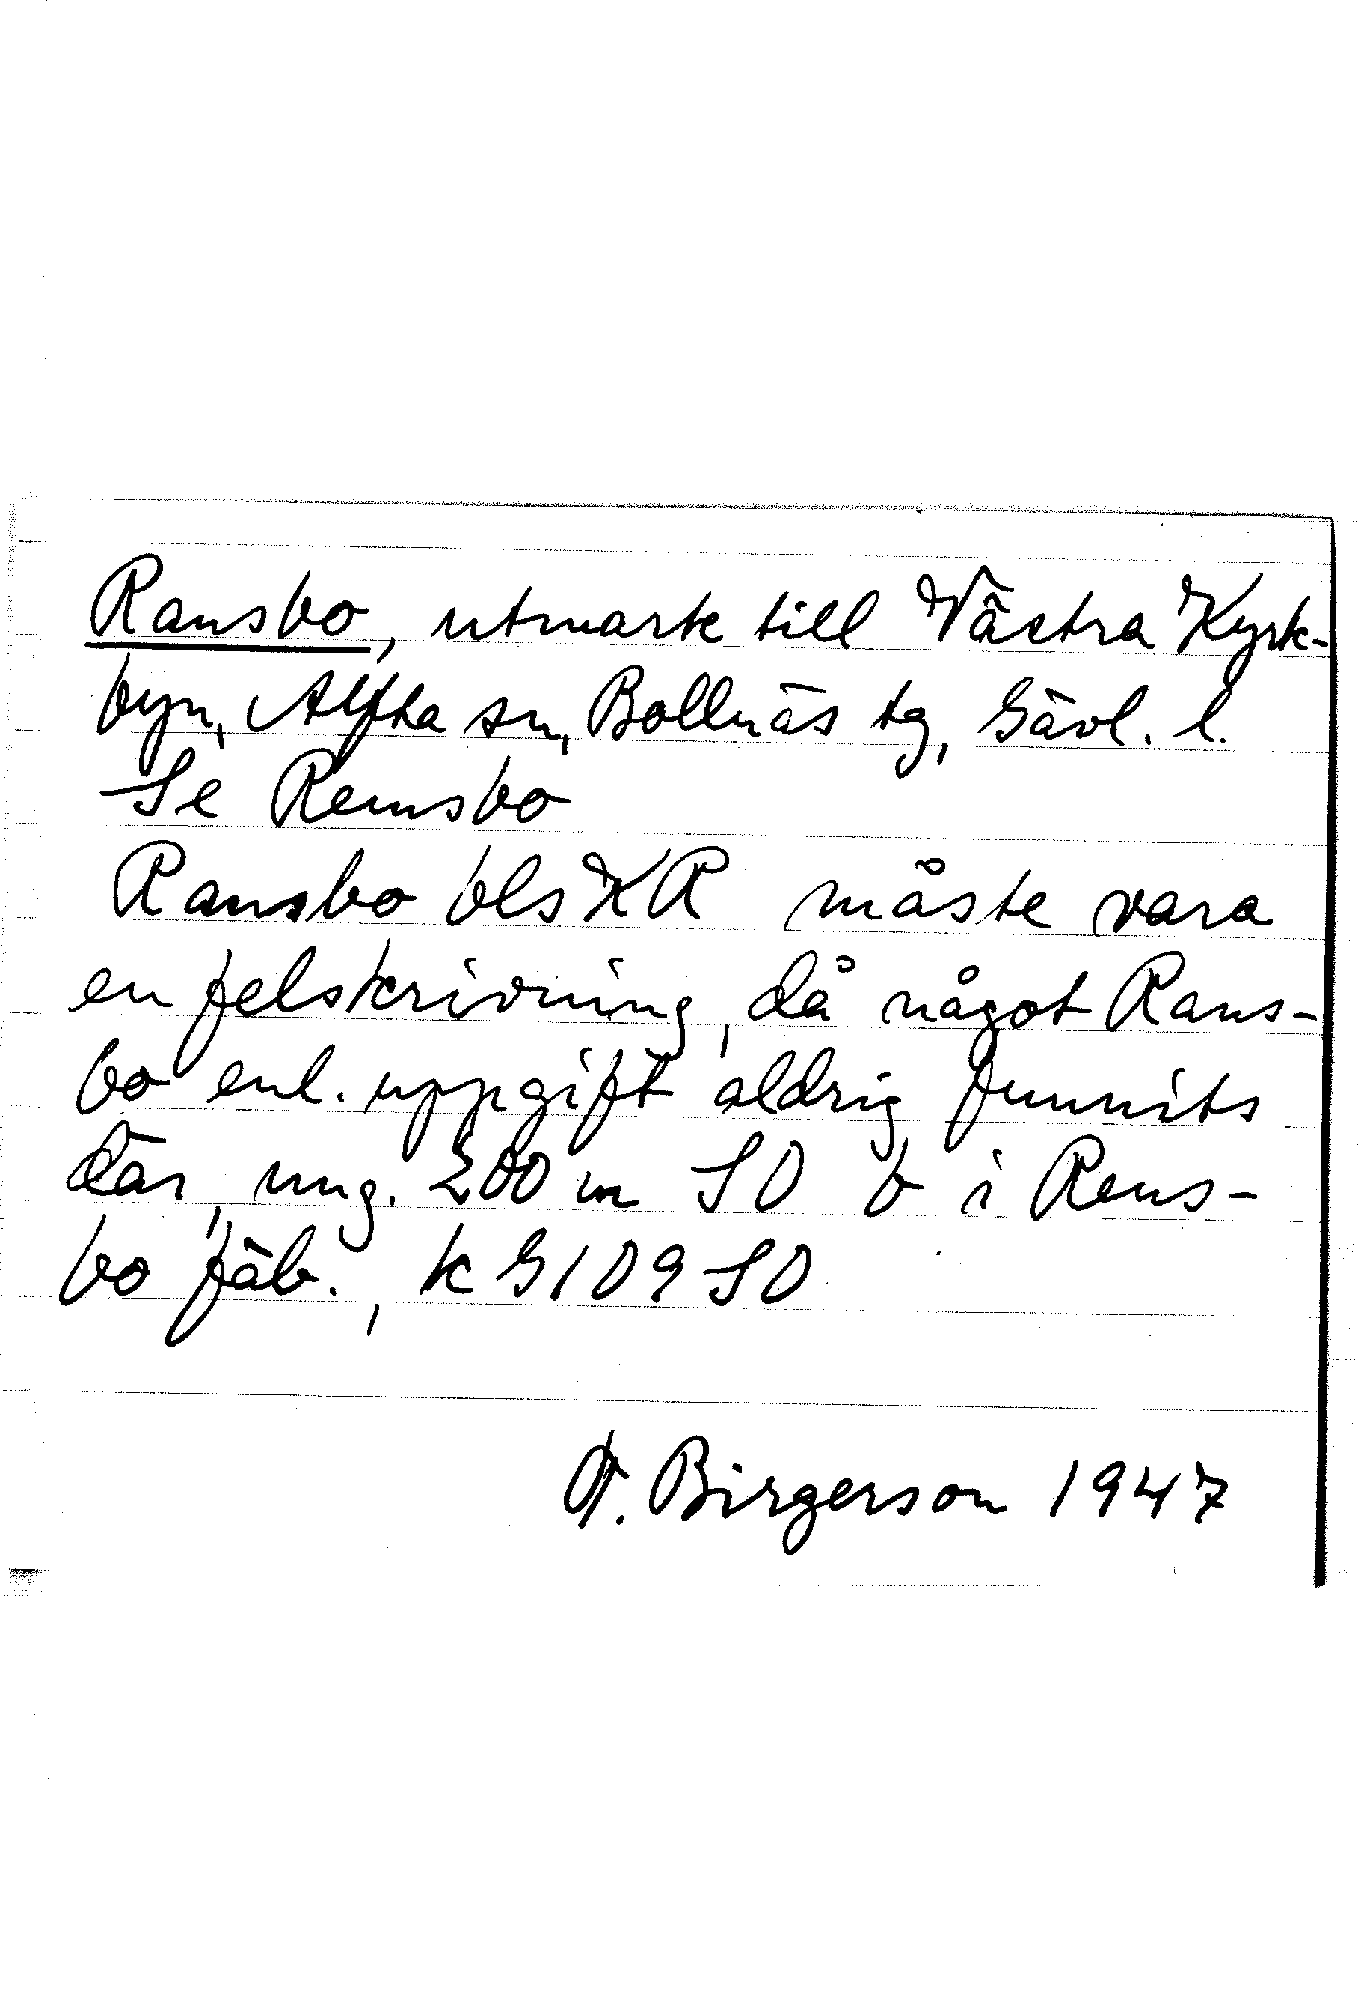 Ransbo, utmark till Västra Kyrk-
byn, Alfta sn, Bollnäs tg, Gävl. l.
Se Rensbo
Ransbo bls KR måste vara
en felskrivning, då något Rans-
bo enl. uppgift aldrig funnits
där, ung. 200 m SO b i Rens-
bo fäb., k G109SO
Birgerson 1947